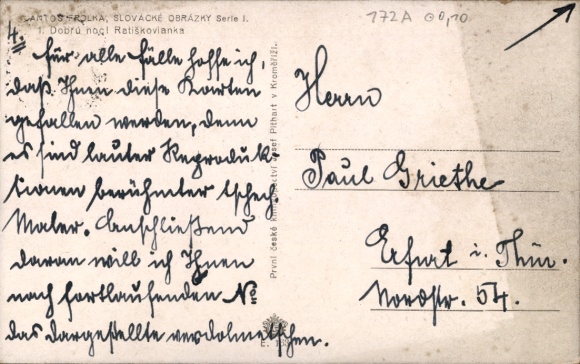 172A
ANTOŠ FROLKA, SLOVÁCKÉ OBRÁZKY Serie I.
1. Dobrú noc! Ratiškovianka
4.
Für alle Fälle hoffe ich,
daß Ihnen diese Karten
gefallen werden, denn
es sind lauter Reproduk-
tionen berühmter tschech.
Maler. Anschließend
daran will ich Ihnen
nach fortlaufenden No
das dargestellte verdolmetschen.
První české knihkupectví Josef Pithart v Kroměříži.
Herrn
Paul Griethe
Erfurt i. Thür.
Nordstr. 54.